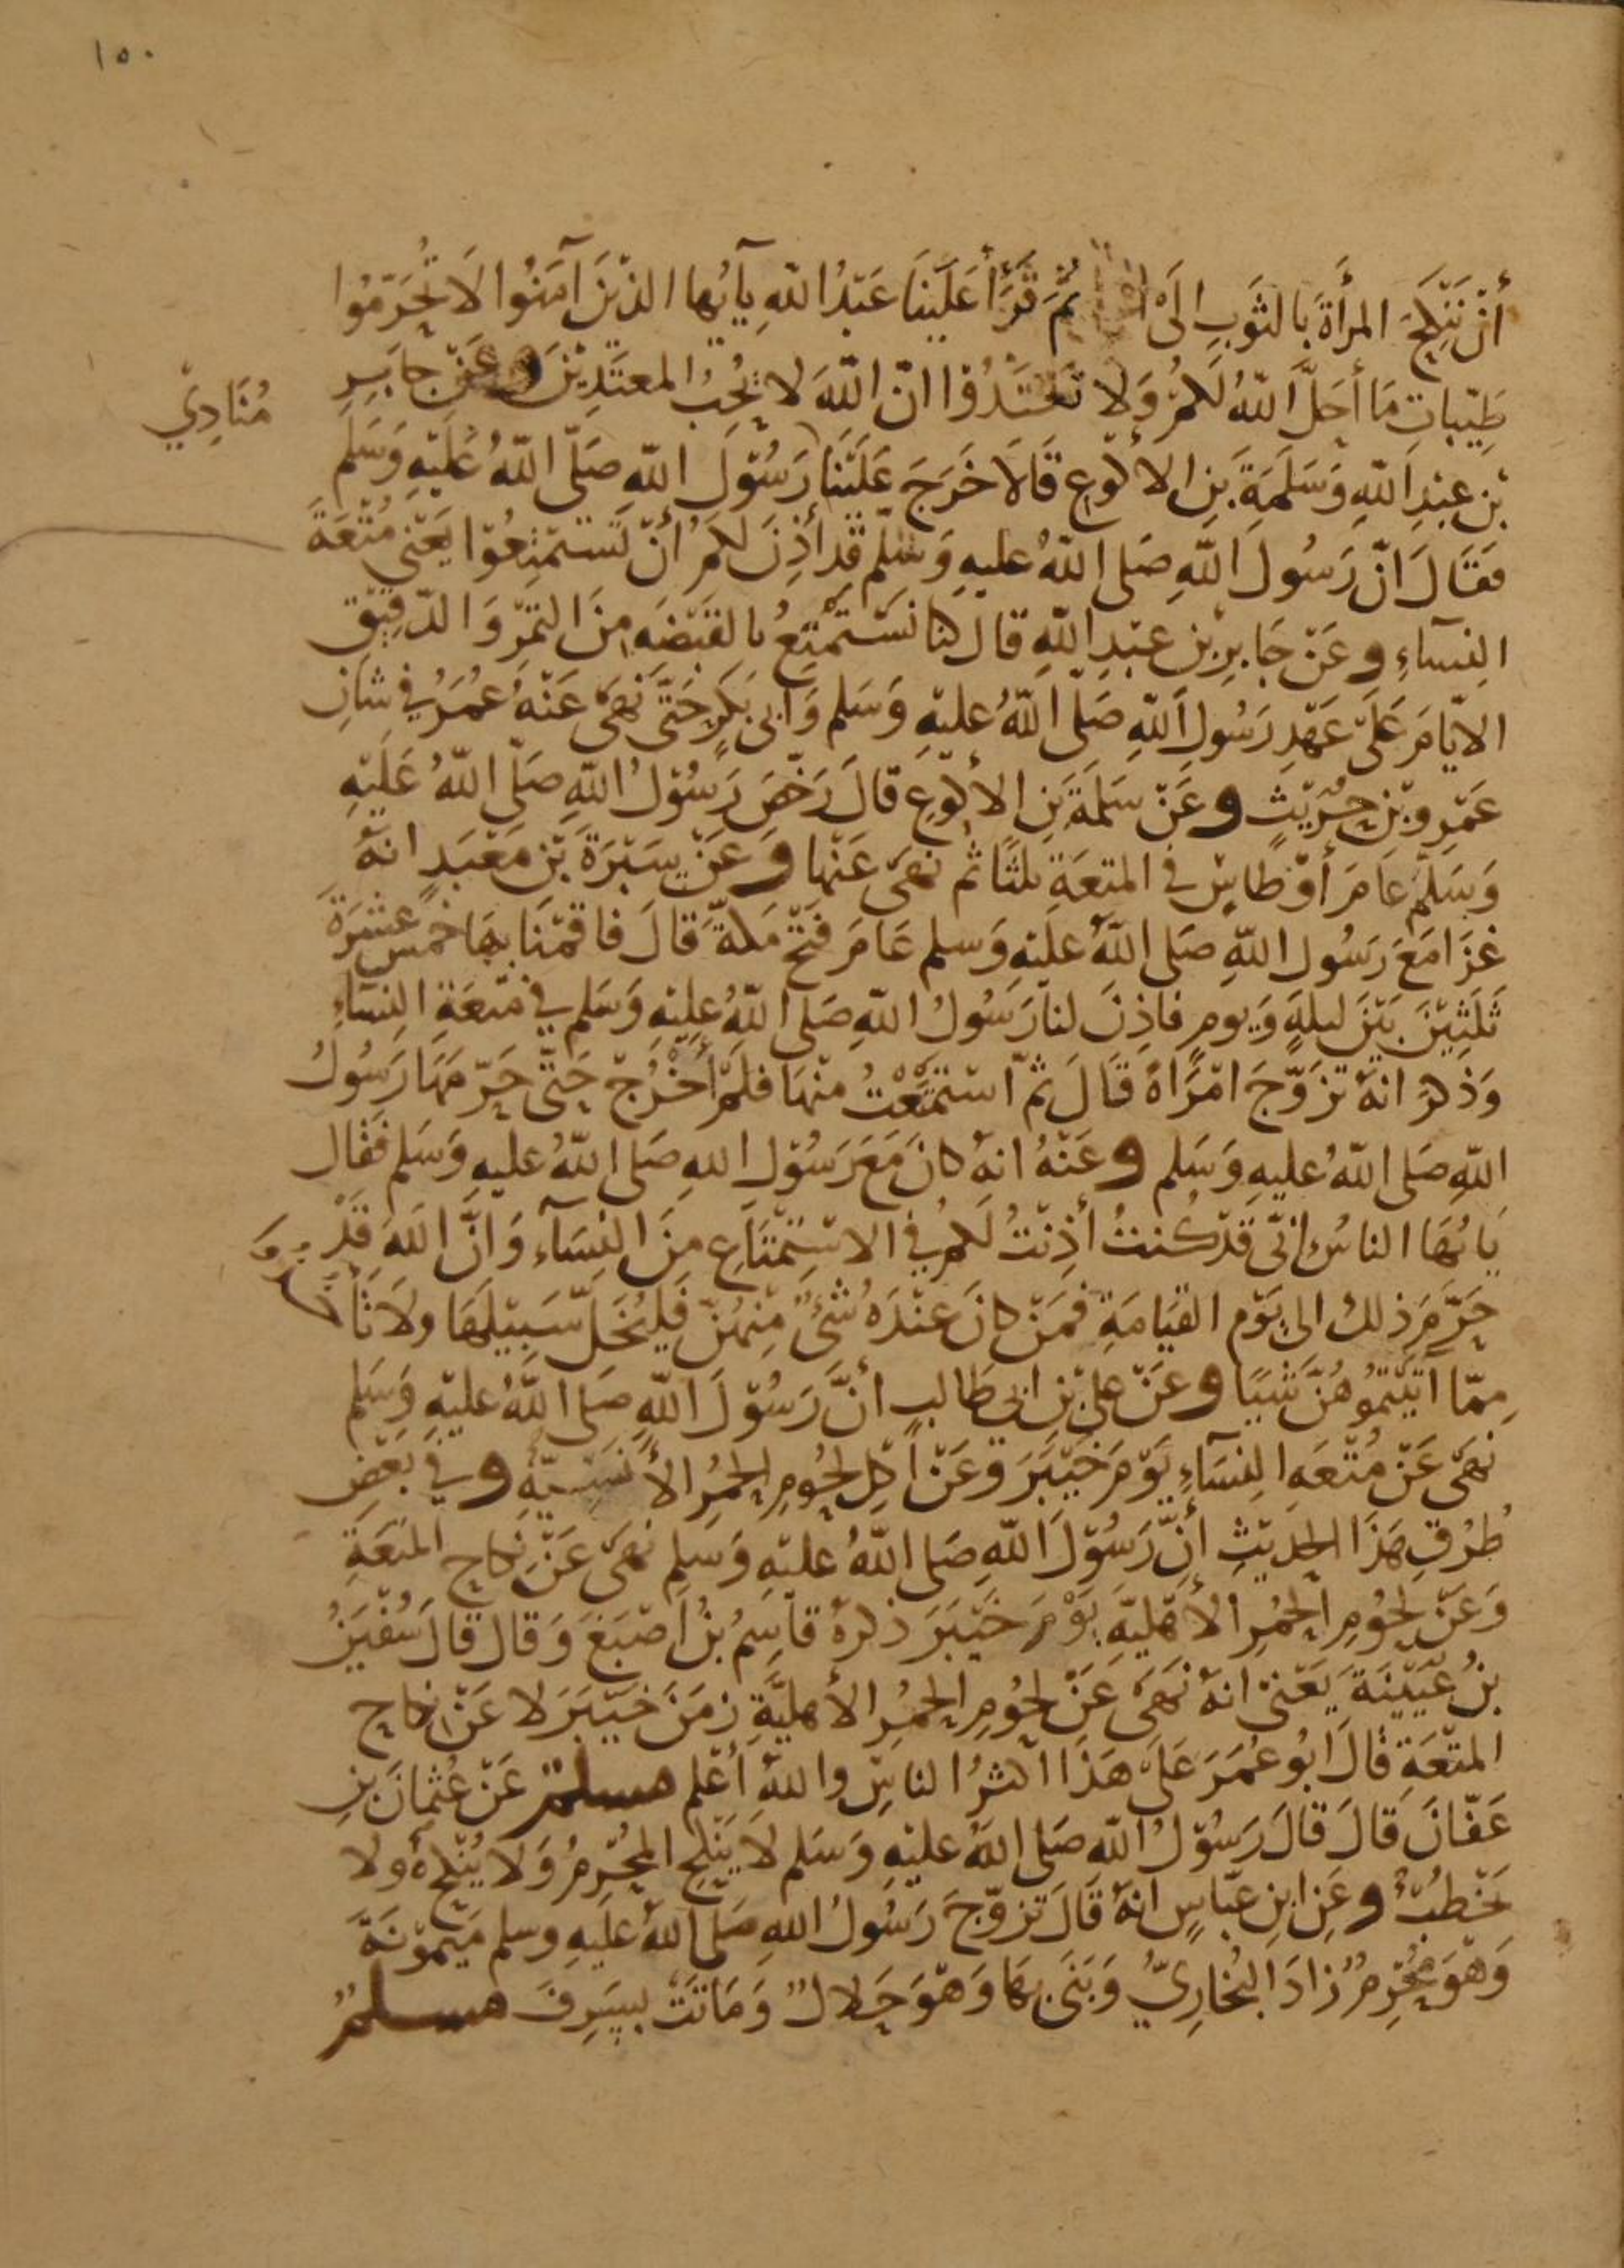 ١٥٠
أنْ نَنْكِحَ المرأَةَ بالثَوبِ الَى ثُمَّ قَرَأَ عَلَيْنَا عَبْدُ اللهِ يآيُّها الذيْنَ آمَنُوا لَا تُحَرِّمُوا
طَيِّبَاتِ مَا أحَلَّ اللهُ لَكُمْ وَلا تَعْتَدُوْا انّ اللهَ لا يُحِبُ المعتَدِيْنَ وعَنْ جَابِرِ
بْنِ عبْدِ اللهِ وَسَلَمَةَ بْنِ الاكْوَعِ قَالَا خَرَجَ عَلَيْنَا رَسُوْلَ اللهِ صَلّى اللهُ عَلَيْهِ وَسَلم
مُنَادِيْ
فَقَالَ انّ رَسُولَ اللهِ صَلى اللهُ عليهِ وَسَلّم قَد أذِنَ لكمُ أنْ تَسْتَمْتِعُوْا يَعْني مُتْعَةَ
النِسَآءِ وعَنْ جَابِرِ بْنِ عَبْدِ اللهِ قَالَ كنا نَسْتَمْتِعُ بالقَبْضَهِ مِنَ التَمْرِ وَالدّقِيْق
الايّامَ عَلَى عَهْدِ رَسُولِ اللهِ صَلّى اللهُ عليْهِ وَسَلم وَابى بَكرٍ حَتّى نَهَى عَنْهُ عُمَرُ في شَانِ
عَمْرِو بْنِ حُرَيْثٍ وعَنْ سَلَمَةَ بْنِ الأكْوَعِ قَالَ رَخّصَ رَسُوْلُ اللهِ صَلّى اللهُ عَلَيْهِ
وَسَلّم عَامَ أوْطَاسٍ في المتعَةِ ثلثًا ثُم نَهَى عَنْها وَعَنْ سَبْرَةَ بْنِ مَعْبَدٍ انهُ
غزَا مَعَ رَسُولِ اللهِ صَلى اللهُ علَيْهِ وَسلم عَامَ فَتْحِ مَكةَ قالَ فاقمْنَا بهَا خمسَ عَشْرَةَ
ثَلَثِيْنَ بَيْنَ ليلةٍ وَيَومٍ فاذِنَ لنا رَسُولُ اللهِ صَلى اللهُ عليْهِ وَسَلم في مُتْعَةِ النِسَاءِ
وَذكرَ انهُ تزَوّجَ امْرَاةً قَالَ ثمّ اسْتَمتَعْتُ منْهَا فلَمْ أخْرُجْ حَتّى حَرّمَهَا رَسُولُ
اللهِ صَلى اللهُ عليهِ وَسَلم وعَنْهُ انهُ كانَ مَعَ رَسُوْلِ اللهِ صَلى اللهُ عليهِ وَسَلم فَقَال
يَا يُّهَا الناسُ انّى قَدْ كُنتُ أذِنْتُ لَكمُ في الاسْتِمْتَاعِ مِنَ النِسَآءِ وَانَّ اللهَ قَدْ
حَرّمَ ذلك الى يَوْمِ القيَامَةِ فمَنْ كانَ عنْدَهُ شَئٌ مِّنهُنّ فَليُخَلّ سَبِيْلَهَا ولاَ تَأخُذُوا
مِمّا آتَيْتُمُوهُنَّ شَيًا وعَنْ علىّ بْنِ ابى طَالبٍ أنَّ رَسُوْلَ اللهِ صَلى اللهُ عليْهِ وَسَلم
نَهَى عَنْ مُتْعَهِ النِسَآءِ يَوْمَ خَيْبَرَ وَعَنْ اكلِ لحُومِ الحُمُرِ الأنَسِيّةِ وفي بَعْضِ
طُرُقِ هَذَا الحَديْثِ أنّ رَسُوْلَ اللهِ صَلى اللهُ عليْهِ وَسَلم نَهَى عَنْ نِكاحِ المتعَةِ
وَعَنْ لحُومِ الحُمُرِ الأهْليّةِ يَوْمَ خَيْبَرَ ذكرهُ قاسِمُ بْنُ اصْبَغَ وَقال قالَ سُفْيَنُ
بْنُ عُيَيْنَةَ يَعْنىْ انهُ نَهَى عَنْ لحُومِ الحُمُرِ الأهليّةِ زمَنَ خَيْبَرَ لا عَنْ نِكاحِ
المتْعَةِ قالَ ابُو عُمَرَ عَلَى هَذَا اكثرُ الناسِ واللهُ أعْلم مسلم عَنْ عُثمانَ بْنِ
عَفّانَ قَالَ قالَ رَسُوْلُ اللهِ صَلى اللهُ عليْهِ وَسَلم لاَ يَنْكِحِ المحْرِمُ وَلا يُنْكَحُ ولا
يَخْطُبُ وعَنِ ابنِ عَبّاسٍ انهُ قَالَ تَزوّجَ رَسُولُ اللهِ صَلى اللهُ عليهِ وسلم مَيمُوْنَةَ
وَهْوَ مُحْرِمٌ زادَ البُخارِىُّ وَبَنَى بهَا وَهْوَ حَلالٌ وَمَاتَتْ بسَرِفَ مسلمٌ